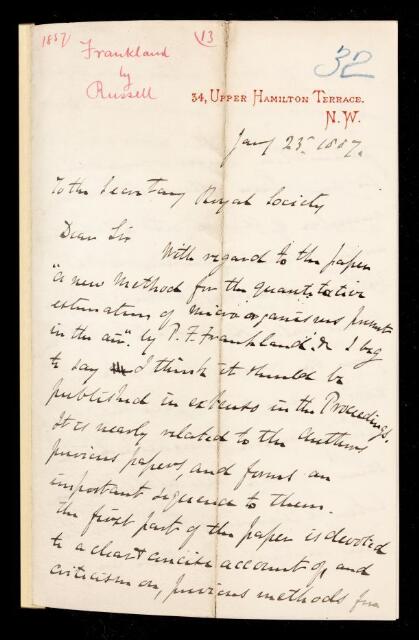 1887
13
Frankland
by
Russell
32
34, UPPER HAMILTON TERRACE.
N.W.
Jany 23rd 1887.
To the Secretary Royal Society
Dear Sir
With regard to the paper
"a new method for the quantitative
estimation of micro organisms present
in the air". by P. F. Frankland. I beg
to say I think it should be
published in extenso in the Proceedings.
It is nearly related to the authors
previous papers, and forms an
important sequence to them.
The first part of the paper is devoted
to a clear & concise account of, and
criticism on, previous methods for